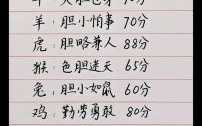 羊：胆小怕事 70分
虎：胆略兼人 88分
猴：色胆迷天 65分
兔：胆小如鼠 60分
鸡：勤劳勇敢 80分